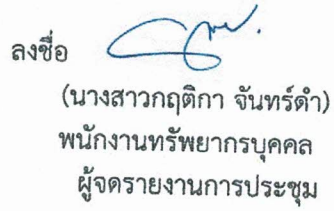 ลงชื่อ
(นางสาวกฤติกา จันทร์ดำ)
พนักงานทรัพยากรบุคคล
ผู้จดรายงานการประชุม